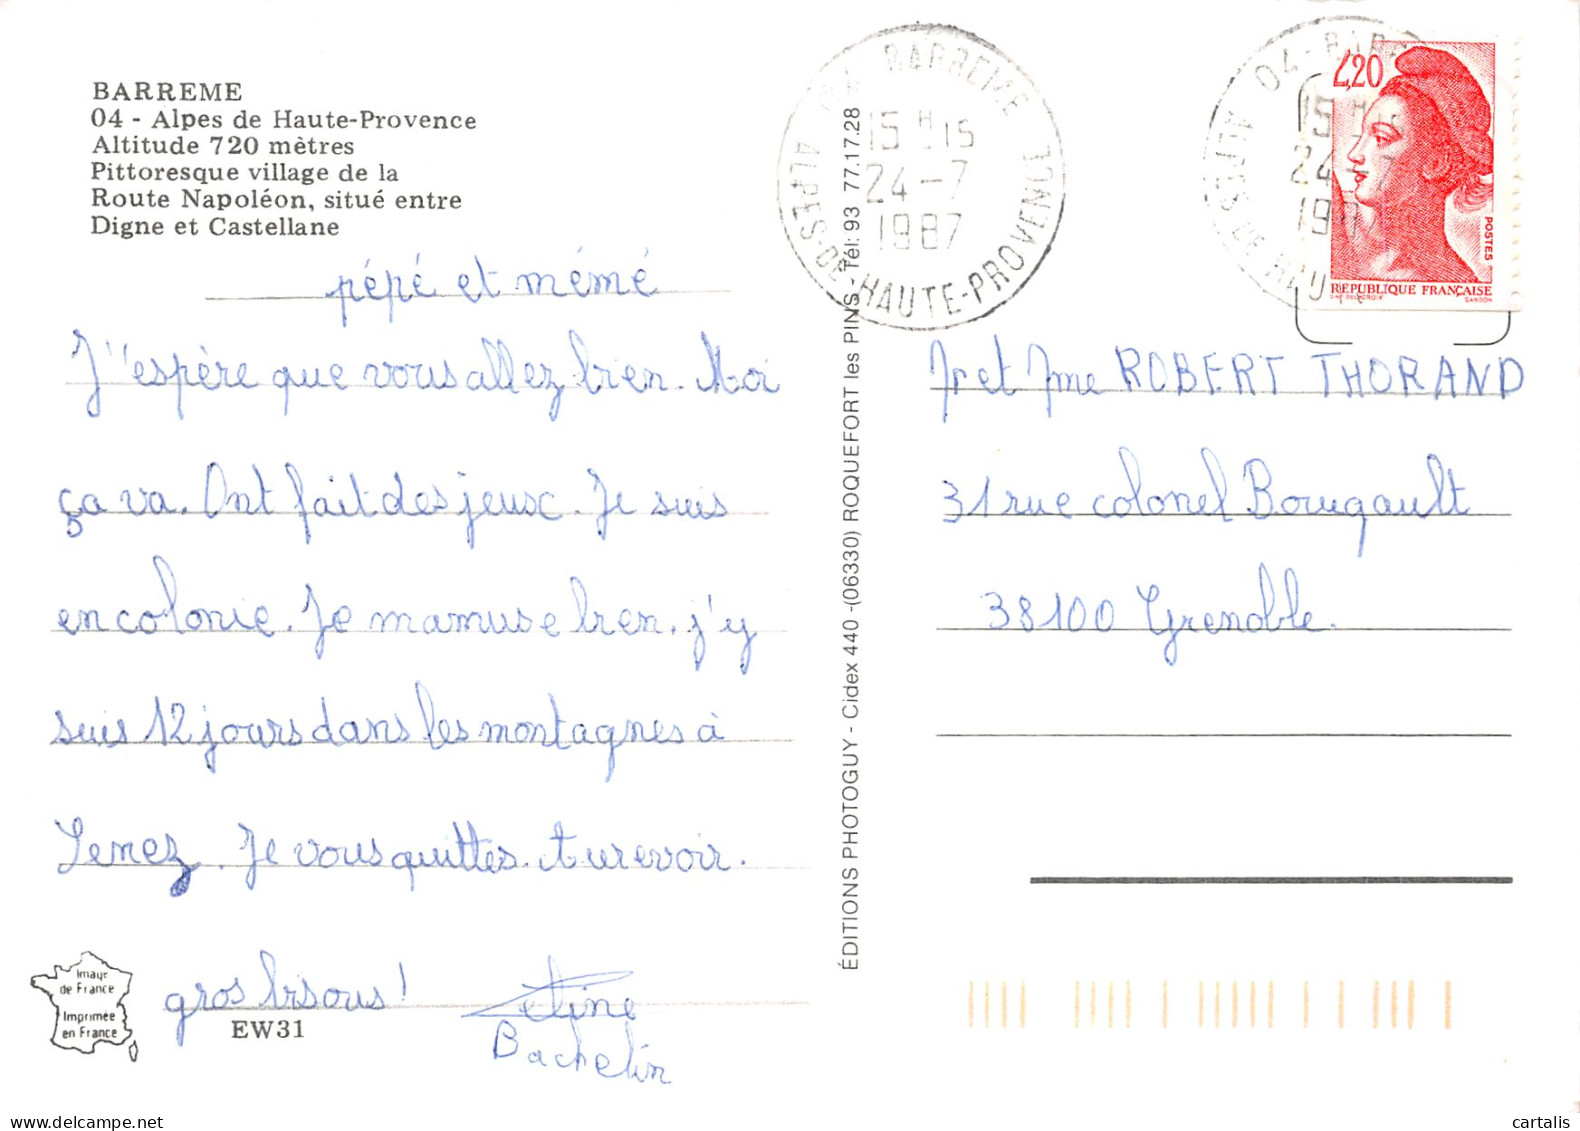 BARREME
04 - Alpes de Haute-Provence
Altitude 720 mètres
Pittoresque village de la
Route Napoléon, situé entre
Digne et Castellane
pépé et mémé
J''espère que vous allez bien. Moi
ça va. Ont fait des jeusc. Je suis
en colonie. Je mamuse bien. j'y
suis 12 jours dans les montagnes à
Senez. Je vous quittes. Aurevoir.
gros bisous!
Celine
Bachelin
Image
de France
Imprimée
en France
EW31
ÉDITIONS PHOTOGUY - Cidex 440 -(06330) ROQUEFORT les PINS - Tél: 93 77.17.28
04 BARREME
15 H 15
24-7
1987
ALPES-DE-HAUTE-PROVENCE
04-BARR
15 H
24-7
ALPES DE HAU
2,20
POSTES
RÉPUBLIQUE FRANÇAISE
D'AP DELACROIX
GANDON
Mr et Mme ROBERT THORAND
31 rue colonel Bougault
38100 Grenoble.
cartalis.com